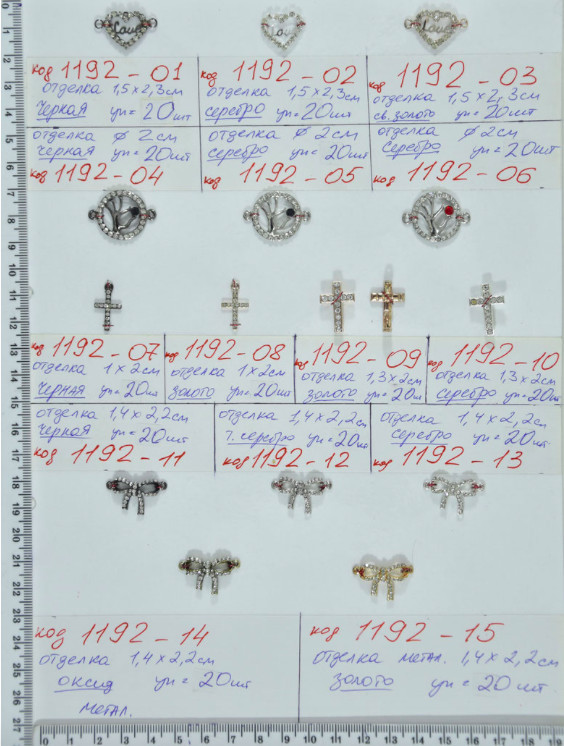 Love
Love
Love
код 1192-01
отделка 1,5x2,3см
черная уп=20шт
код 1192-02
отделка 1,5x2,3см
серебро уп=20шт
код 1192-03
отделка 1,5x2,3см
св.золото уп=20шт
отделка ⌀ 2см
черная уп=20шт
код 1192-04
отделка ⌀ 2см
серебро уп=20шт
код 1192-05
отделка ⌀ 2см
серебро уп=20шт
код 1192-06
код 1192-07
отделка 1x2см
черная уп=20шт
код 1192-08
отделка 1x2см
золото уп=20шт
код 1192-09
отделка 1,3x2см
золото уп=20шт
код 1192-10
отделка 1,3x2см
серебро уп=20шт
отделка 1,4x2,2см
черная уп=20шт
код 1192-11
отделка 1,4x2,2см
т.серебро уп=20шт
код 1192-12
отделка 1,4x2,2см
серебро уп=20шт
код 1192-13
код 1192-14
отделка 1,4x2,2см
оксид уп=20шт
метал.
код 1192-15
отделка метал. 1,4x2,2см
золото уп=20шт
0 1 2 3 4 5 6 7 8 9 10 11 12 13 14 15 16 17 18 19